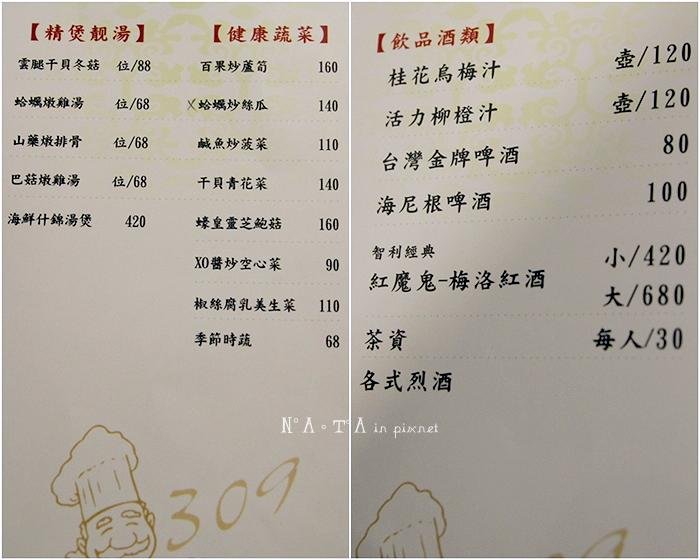 【精煲靚湯】
雲腿干貝冬菇 位/88
蛤蠣燉雞湯 位/68
山藥燉排骨 位/68
巴菇燉雞湯 位/68
海鮮什錦湯煲 420
【健康蔬菜】
百果炒蘆筍 160
蛤蠣炒絲瓜 140
鹹魚炒菠菜 110
干貝青花菜 140
蠔皇靈芝鮑菇 160
XO醬炒空心菜 90
椒絲腐乳美生菜 110
季節時蔬 68
309
【飲品酒類】
桂花烏梅汁 壺/120
活力柳橙汁 壺/120
台灣金牌啤酒 80
海尼根啤酒 100
智利經典
紅魔鬼-梅洛紅酒 小/420
大/680
茶資 每人/30
各式烈酒
N°A。T°A in pixnet